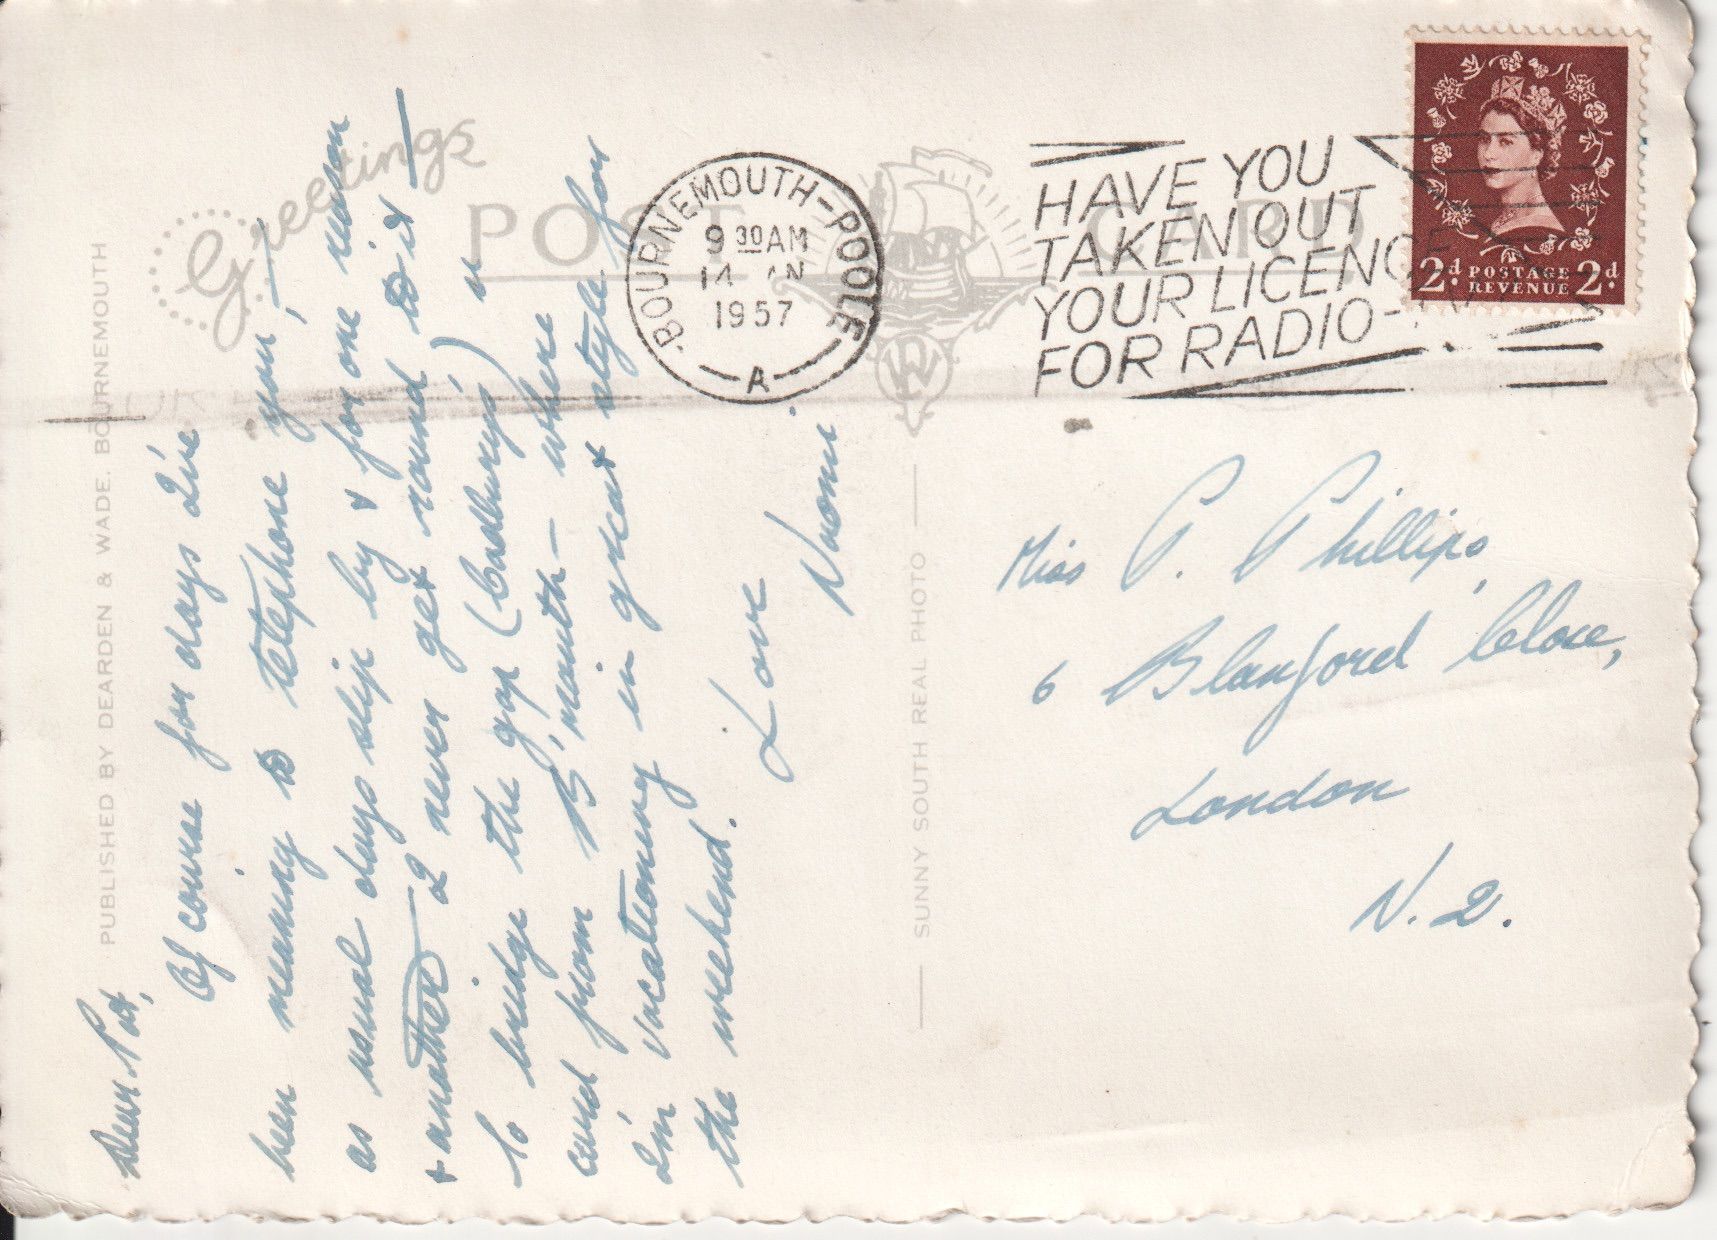 Greetings
POST CARD
BOURNEMOUTH-POOLE
9 30 AM
14
1957
A
HAVE YOU
TAKEN OUT
YOUR LICENCE
FOR RADIO-
2d POSTAGE REVENUE 2d
PUBLISHED BY DEARDEN & WADE. BOURNEMOUTH
SUNNY SOUTH REAL PHOTO
Dear Pat,
Of course for days I've
been meaning to telephone you, —
as usual days slip by & for one reason
& another I never get round to it —
to bridge the gap (Cadburys') a
card from B'mouth - where
I'm vacationing in great style for
the weekend.
Love
Naomi.
Miss P. Phillips,
6 Blanford Close,
London
N.2.